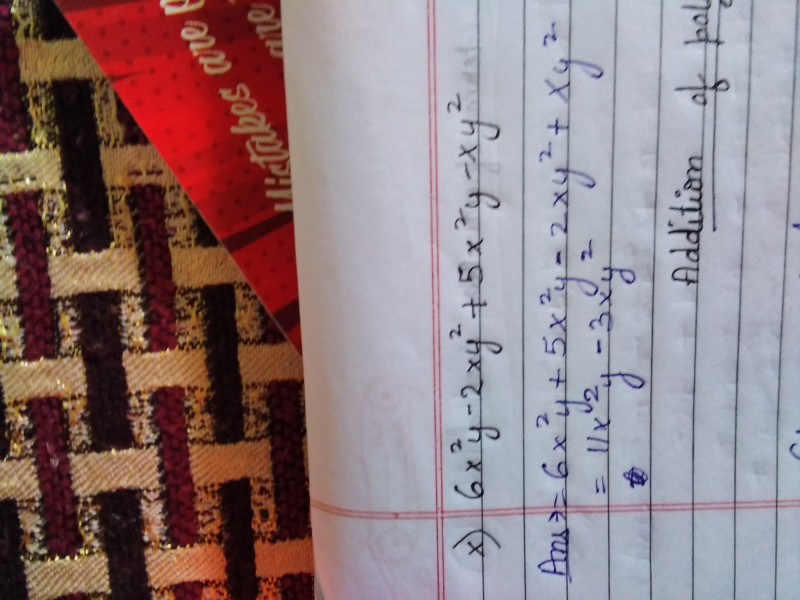 Mistakes are
are
x) 6x²y-2xy²+5x²y-xy²
Ans→ 6x²y+5x²y-2xy²+xy²
= 11x²y-3xy²
Addition of